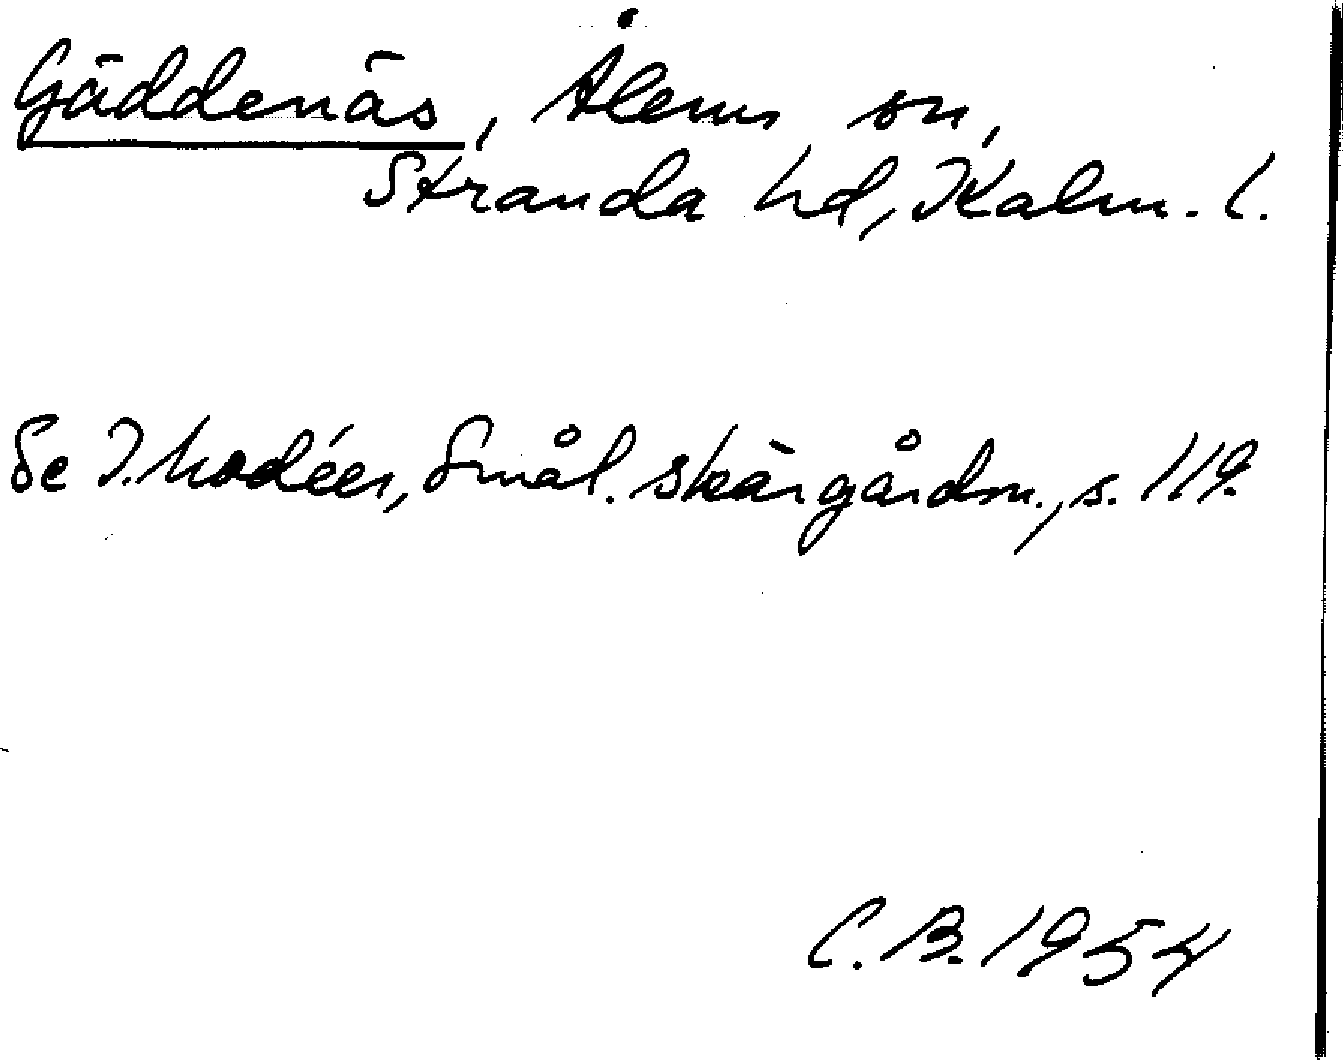 Gäddenäs, Ålems sn,
Stranda hd, Kalm. l.
Se I. Modéer, Smål. skärgårdsn., s. 119.
C. B. 1954